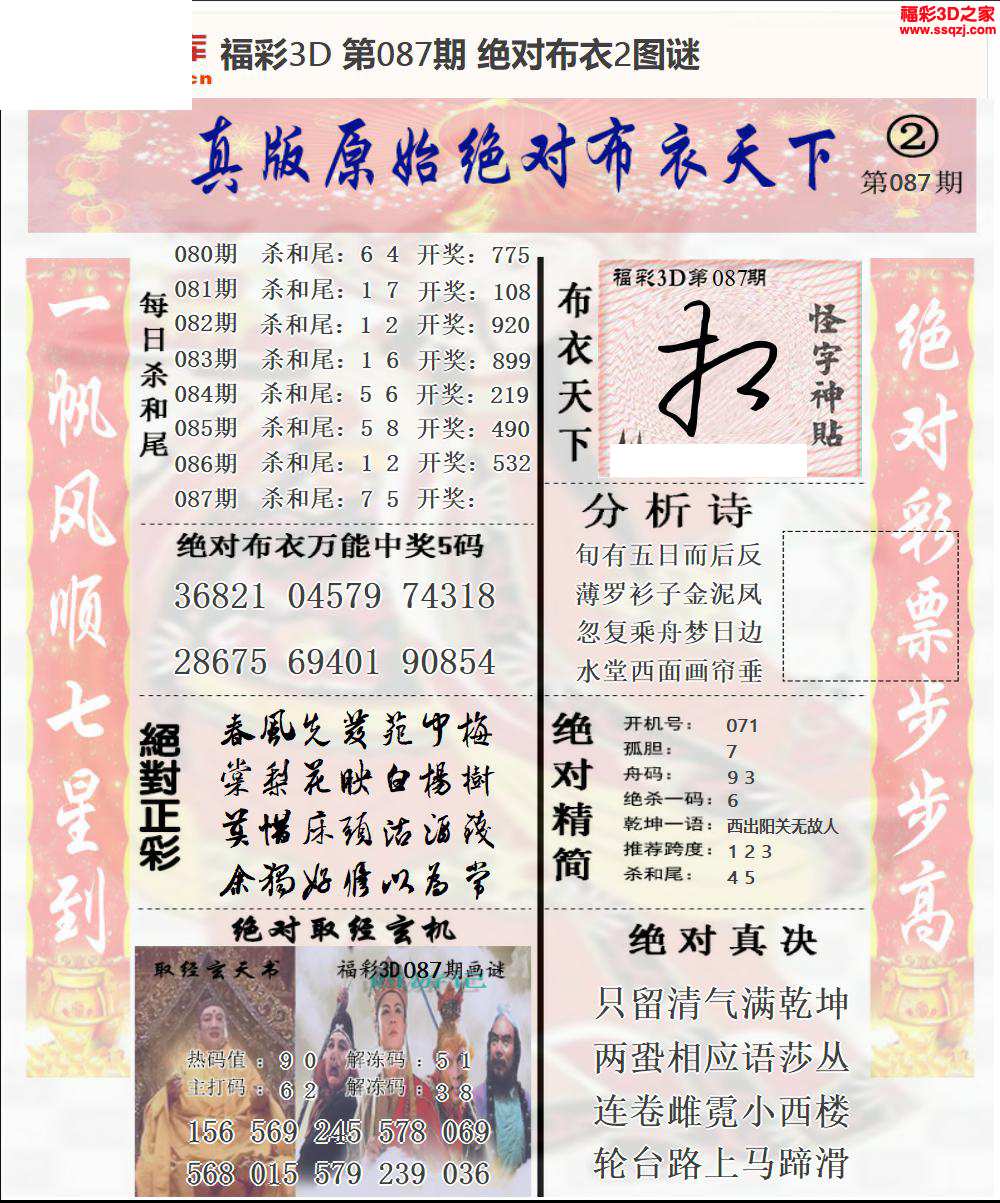 福彩3D之家
www.ssqzj.com
cn
福彩3D 第087期 绝对布衣2图谜
真版原始绝对布衣天下
②
第087期
一帆风顺七星到
每日杀和尾
080期 杀和尾：6 4 开奖：775
081期 杀和尾：1 7 开奖：108
082期 杀和尾：1 2 开奖：920
083期 杀和尾：1 6 开奖：899
084期 杀和尾：5 6 开奖：219
085期 杀和尾：5 8 开奖：490
086期 杀和尾：1 2 开奖：532
087期 杀和尾：7 5 开奖：
绝对布衣万能中奖5码
36821 04579 74318
28675 69401 90854
絕對正彩
春風先發苑中梅
棠梨花映白楊樹
莫惜床頭沽酒錢
余獨好脩以為常
绝对取经玄机
取经玄天书
福彩3D087期画谜
热码值：9 0 解冻码：5 1
主打码：6 2 解冻码：3 8
156 569 245 578 069
568 015 579 239 036
布衣天下
福彩3D第087期
怪字神貼
分析诗
旬有五日而后反
薄罗衫子金泥凤
忽复乘舟梦日边
水堂西面画帘垂
绝对精简
开机号： 071
孤胆： 7
舟码： 9 3
绝杀一码：6
乾坤一语：西出阳关无故人
推荐跨度：1 2 3
杀和尾： 4 5
绝对真决
只留清气满乾坤
两蛩相应语莎丛
连卷雌霓小西楼
轮台路上马蹄滑
绝对彩票步步高